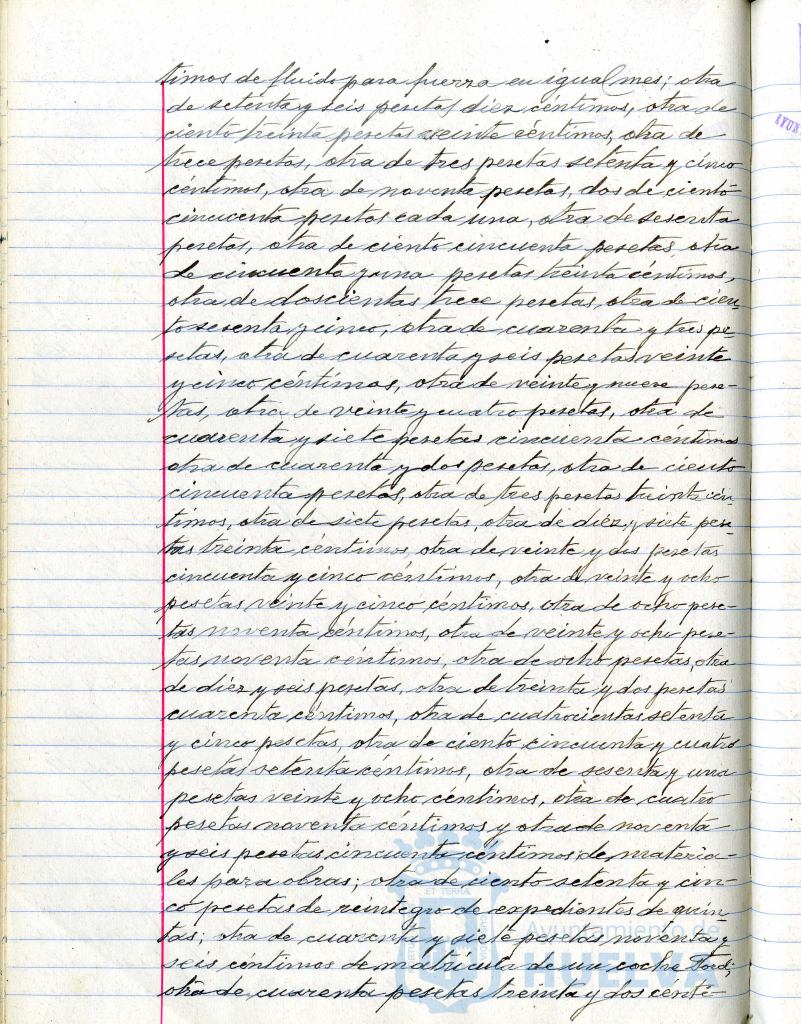 timos de fluido para fuerza en igual mes; otra
de setenta y seis pesetas diez céntimos, otra de
ciento treinta pesetas veinte céntimos, otra de
trece pesetas, otra de tres pesetas setenta y cinco
céntimos, otra de noventa pesetas, dos de ciento
cincuenta pesetas cada una, otra de sesenta
pesetas, otra de ciento cincuenta pesetas, otra
de cincuenta y una pesetas treinta céntimos,
otra de doscientas trece pesetas, otra de cien-
to sesenta y cinco, otra de cuarenta y tres pe-
setas, otra de cuarenta y seis pesetas veinte
y cinco céntimos, otra de veinte y nueve pese-
tas, otra de veinte y cuatro pesetas, otra de
cuarenta y siete pesetas cincuenta céntimos
otra de cuarenta y dos pesetas, otra de ciento
cincuenta pesetas, otra de tres pesetas treinta cén-
timos, otra de siete pesetas, otra de diéz y siete pese-
tas treinta céntimos, otra de veinte y dos pesetas
cincuenta y cinco céntimos, otra de veinte y ocho
pesetas veinte y cinco céntimos, otra de ocho pese-
tas noventa céntimos, otra de veinte y ocho pese-
tas noventa céntimos, otra de ocho pesetas, otra
de diéz y seis pesetas, otra de treinta y dos pesetas
cuarenta céntimos, otra de cuatrocientas setenta
y cinco pesetas, otra de ciento cincuenta y cuatro
pesetas setenta céntimos, otra de sesenta y una
pesetas veinte y ocho céntimos, otra de cuatro
pesetas noventa céntimos y otra de noventa
y seis pesetas cincuenta céntimos de materia-
les para obras; otra de ciento setenta y cin-
co pesetas de reintegro de expedientes de quin-
tas; otra de cuarenta y siete pesetas noventa y
seis céntimos de matrícula de un coche Ford;
otra de cuarenta pesetas treinta y dos cénti-
ET TERRA
Ayuntamiento de
HUELVA